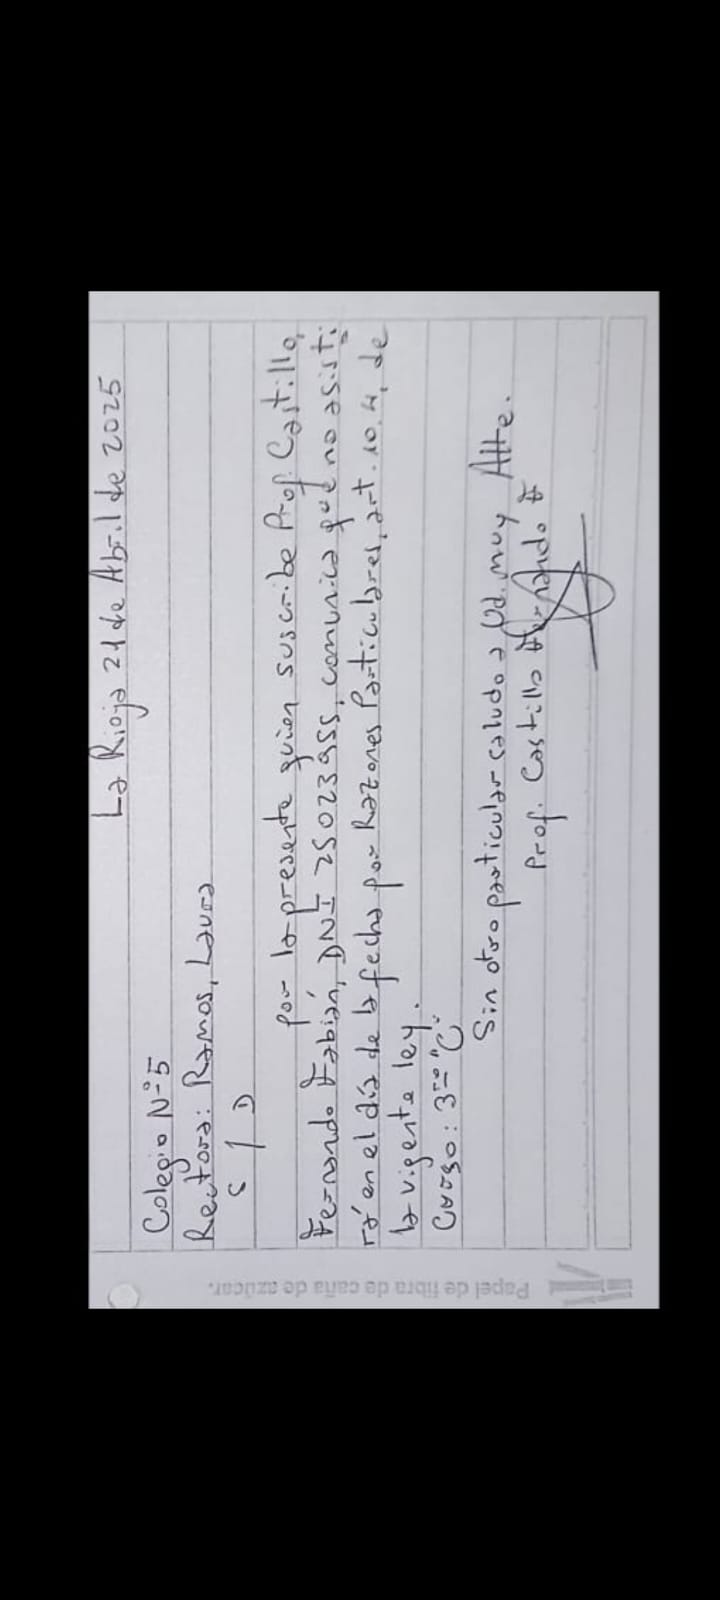 La Rioja 21 de Abril de 2025
Colegio N° 5
Rectora: Ramos, Laura
S / D
Por la presente quien suscribe Prof. Castillo,
Fernando Fabián, DNI 25023955, comunica que no asisti
rá en el día de la fecha por Razones Particulares, art. 10.4, de
la vigente ley.
Curso: 3ro "C"
Sin otro particular saludo a Ud. muy Atte.
Prof. Castillo Fernando F
Papel de fibra de caña de azúcar.